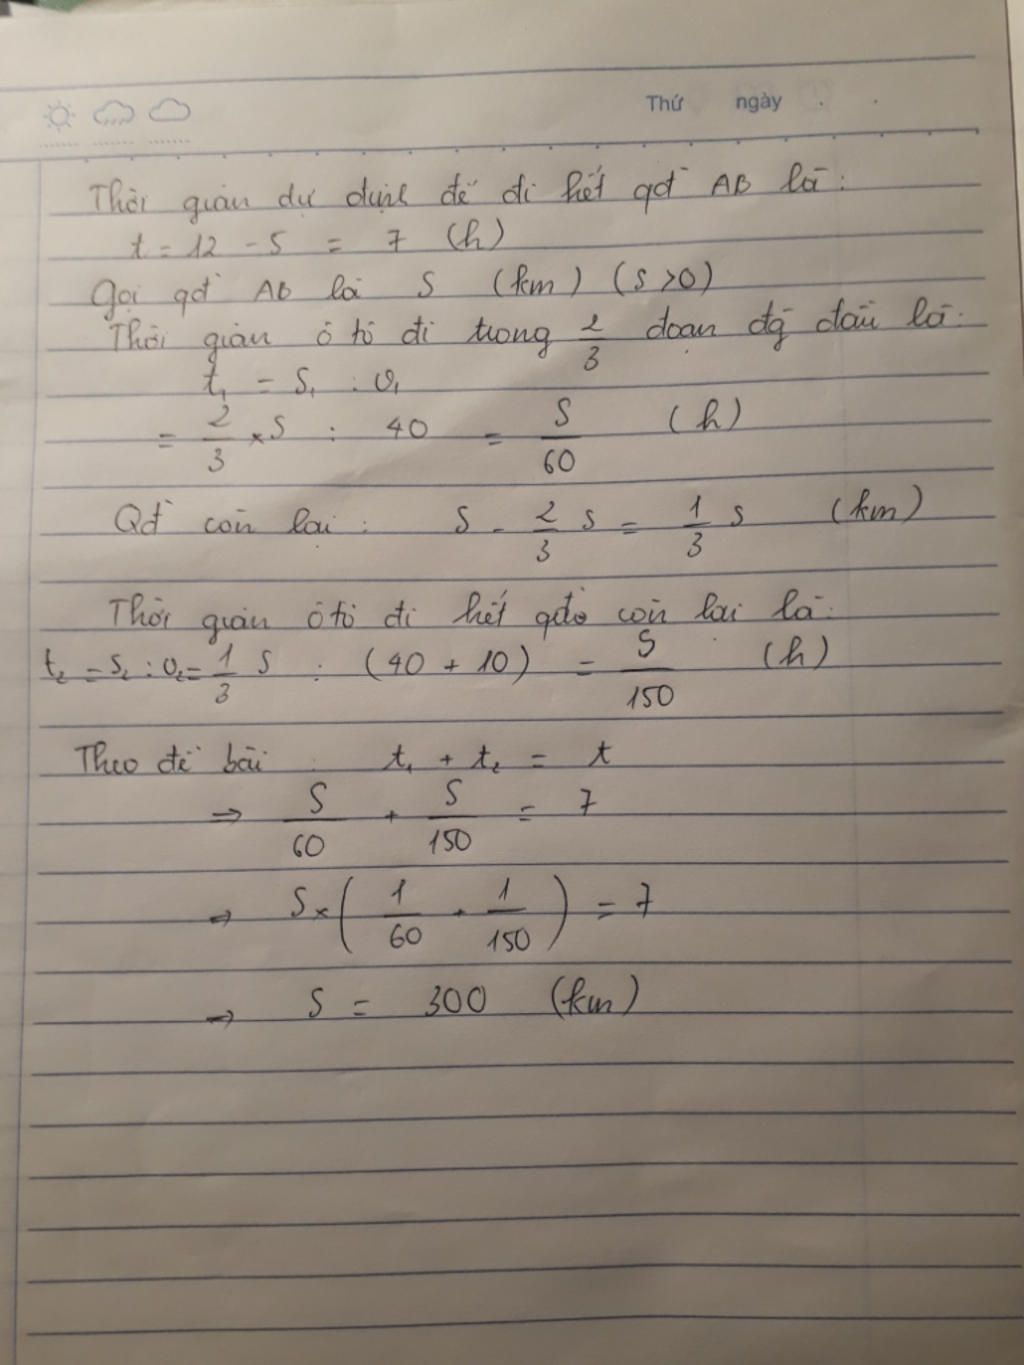 Thứ ngày
Thời gian dự định để đi hết qđ AB là:
t = 12 - 5 = 7 (h)
Gọi qđ AB là S (km) (S > 0)
Thời gian ô tô đi trong 2/3 đoạn đg đầu là:
t₁ = S₁ : v₁
= 2/3 × S : 40 = S/60 (h)
Qđ còn lại: S - 2/3 S = 1/3 S (km)
Thời gian ô tô đi hết qđ còn lại là:
t₂ = S₂ : v₂ = 1/3 S : (40 + 10) = S/150 (h)
Theo đề bài: t₁ + t₂ = t
⇒ S/60 + S/150 = 7
⇒ S × (1/60 + 1/150) = 7
⇒ S = 300 (km)